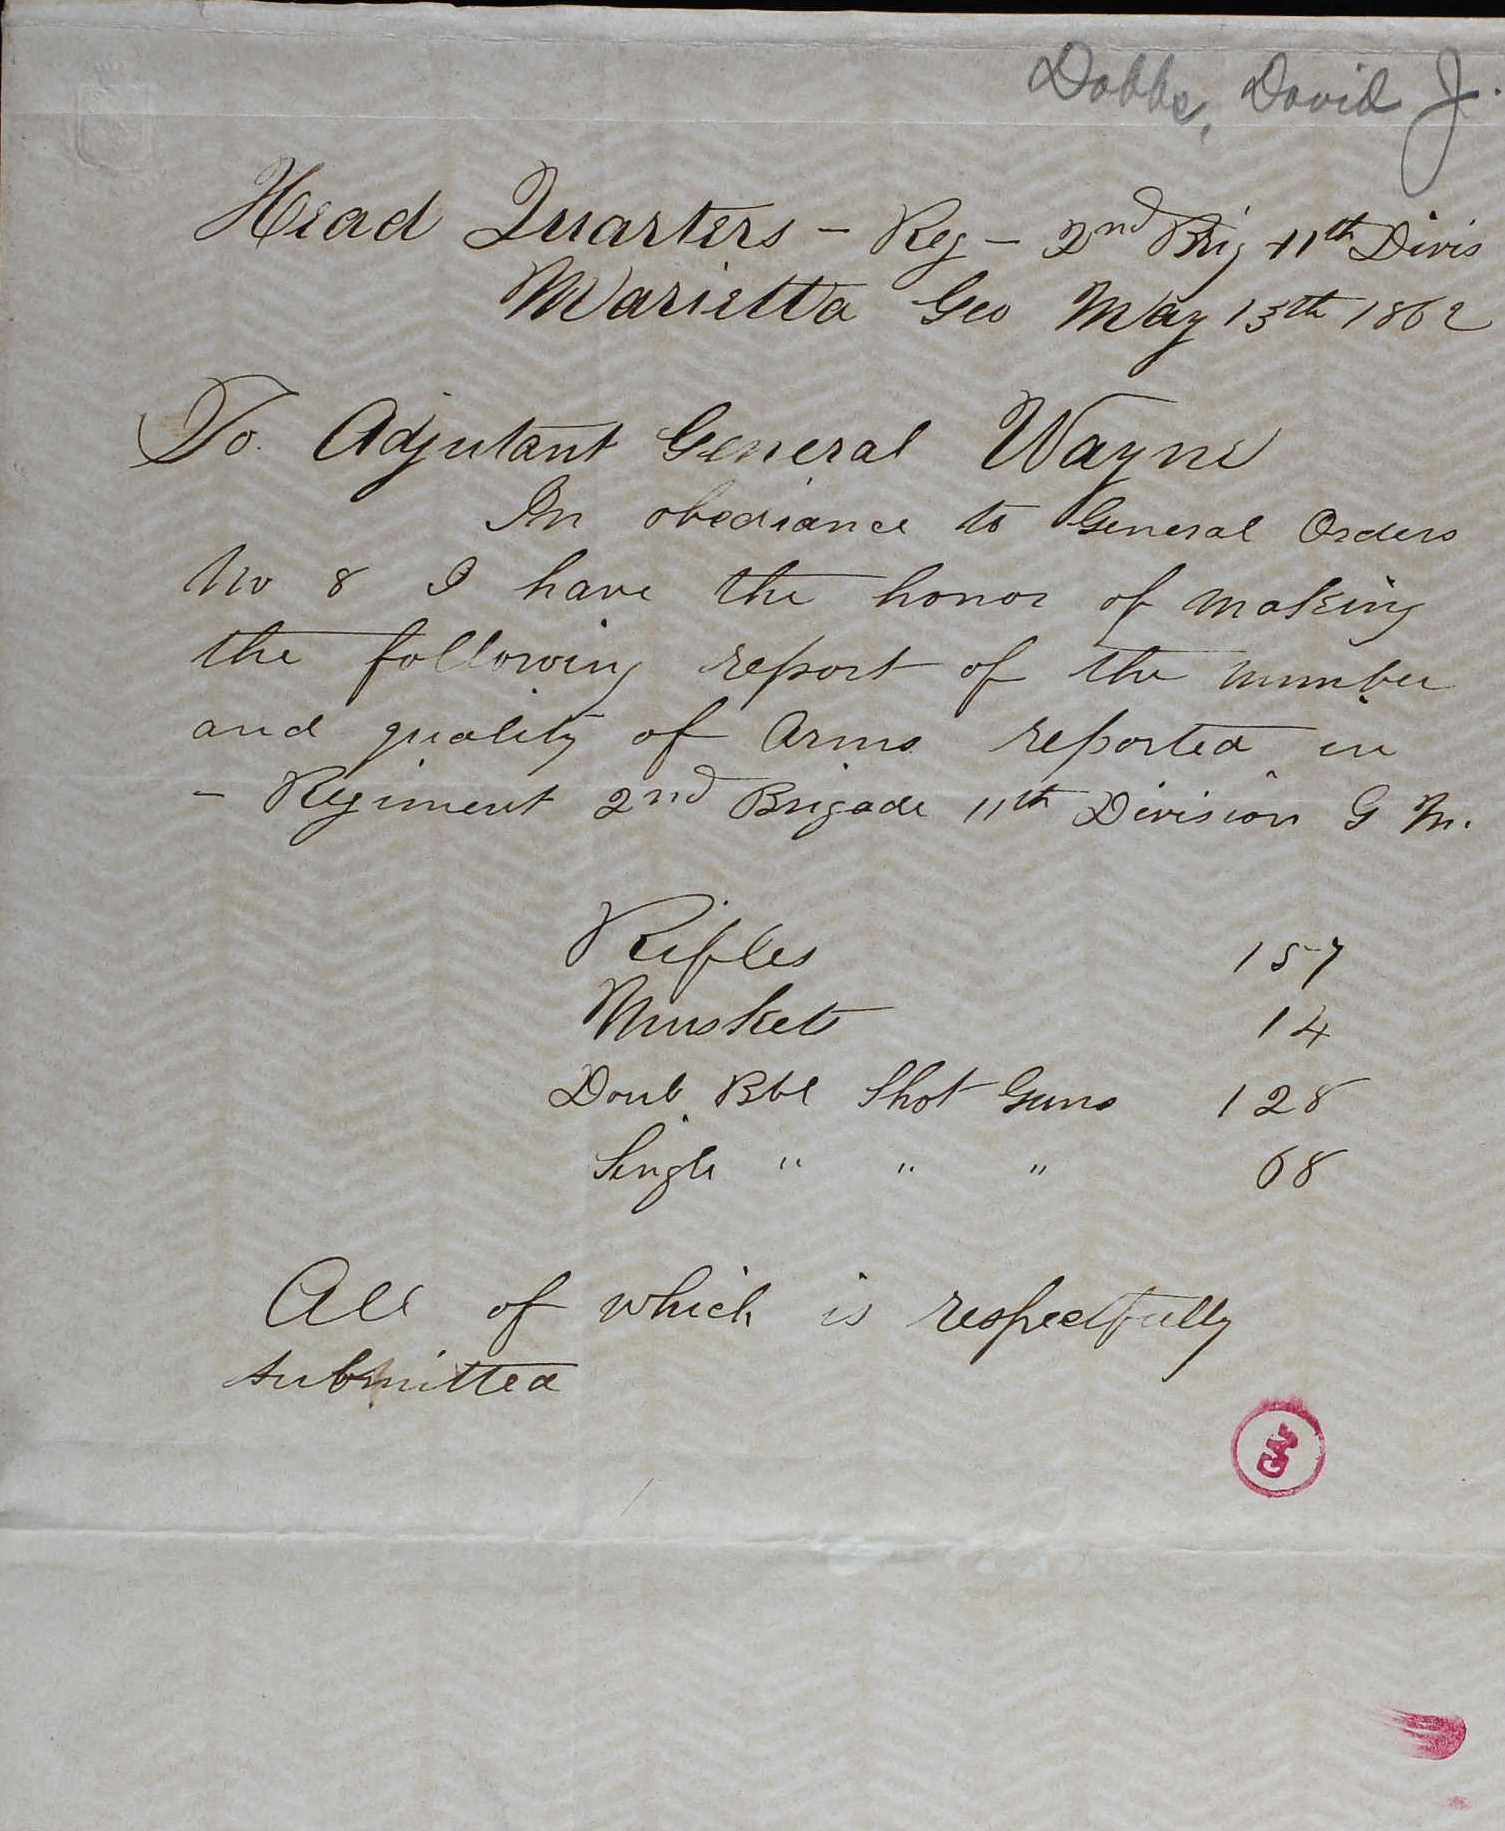 Dobbs, David J.
Head Quarters - Reg - 2nd Brig 11th Divis
Marietta Geo May 13th 1862
To Adjutant General Wayne
In obediance to General Orders
No 8 I have the honor of making
the following report of the number
and quality of Arms reported in
- Regiment 2nd Brigade 11th Division G M.
Rifles 157
Muskets 14
Doub Bbl Shot Guns 128
Single " " " 68
All of which is respectfully
submitted